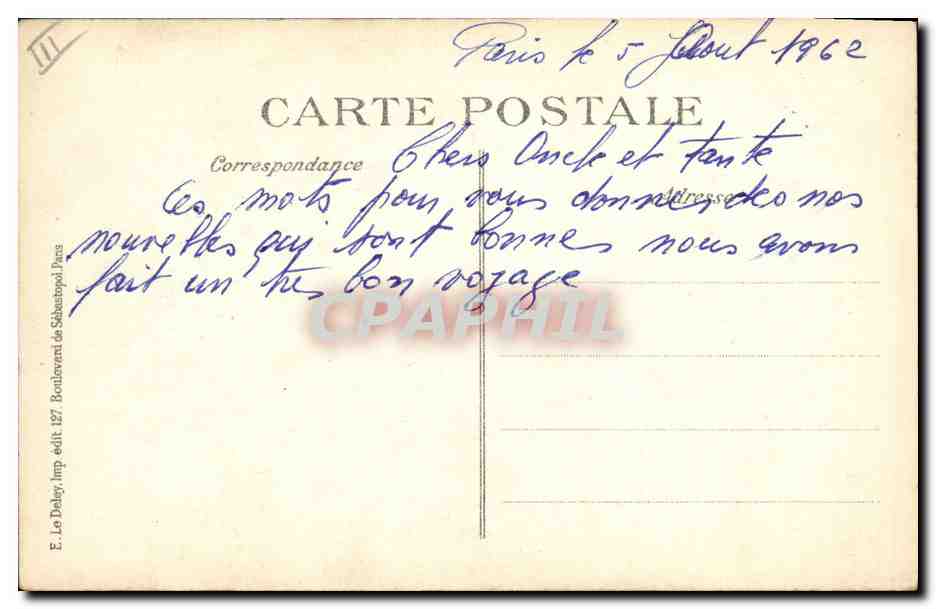 III
Paris le 5 Aout 1962
CARTE POSTALE
Correspondance
Adresse
Chers Oncle et tante
Ces mots pour vous donner de nos
nouvelles qui sont bonnes nous avons
fait un tres bon voyage
CPAPHIL
E. Le Deley, Imp. édit. 127, Boulevard de Sébastopol, Paris